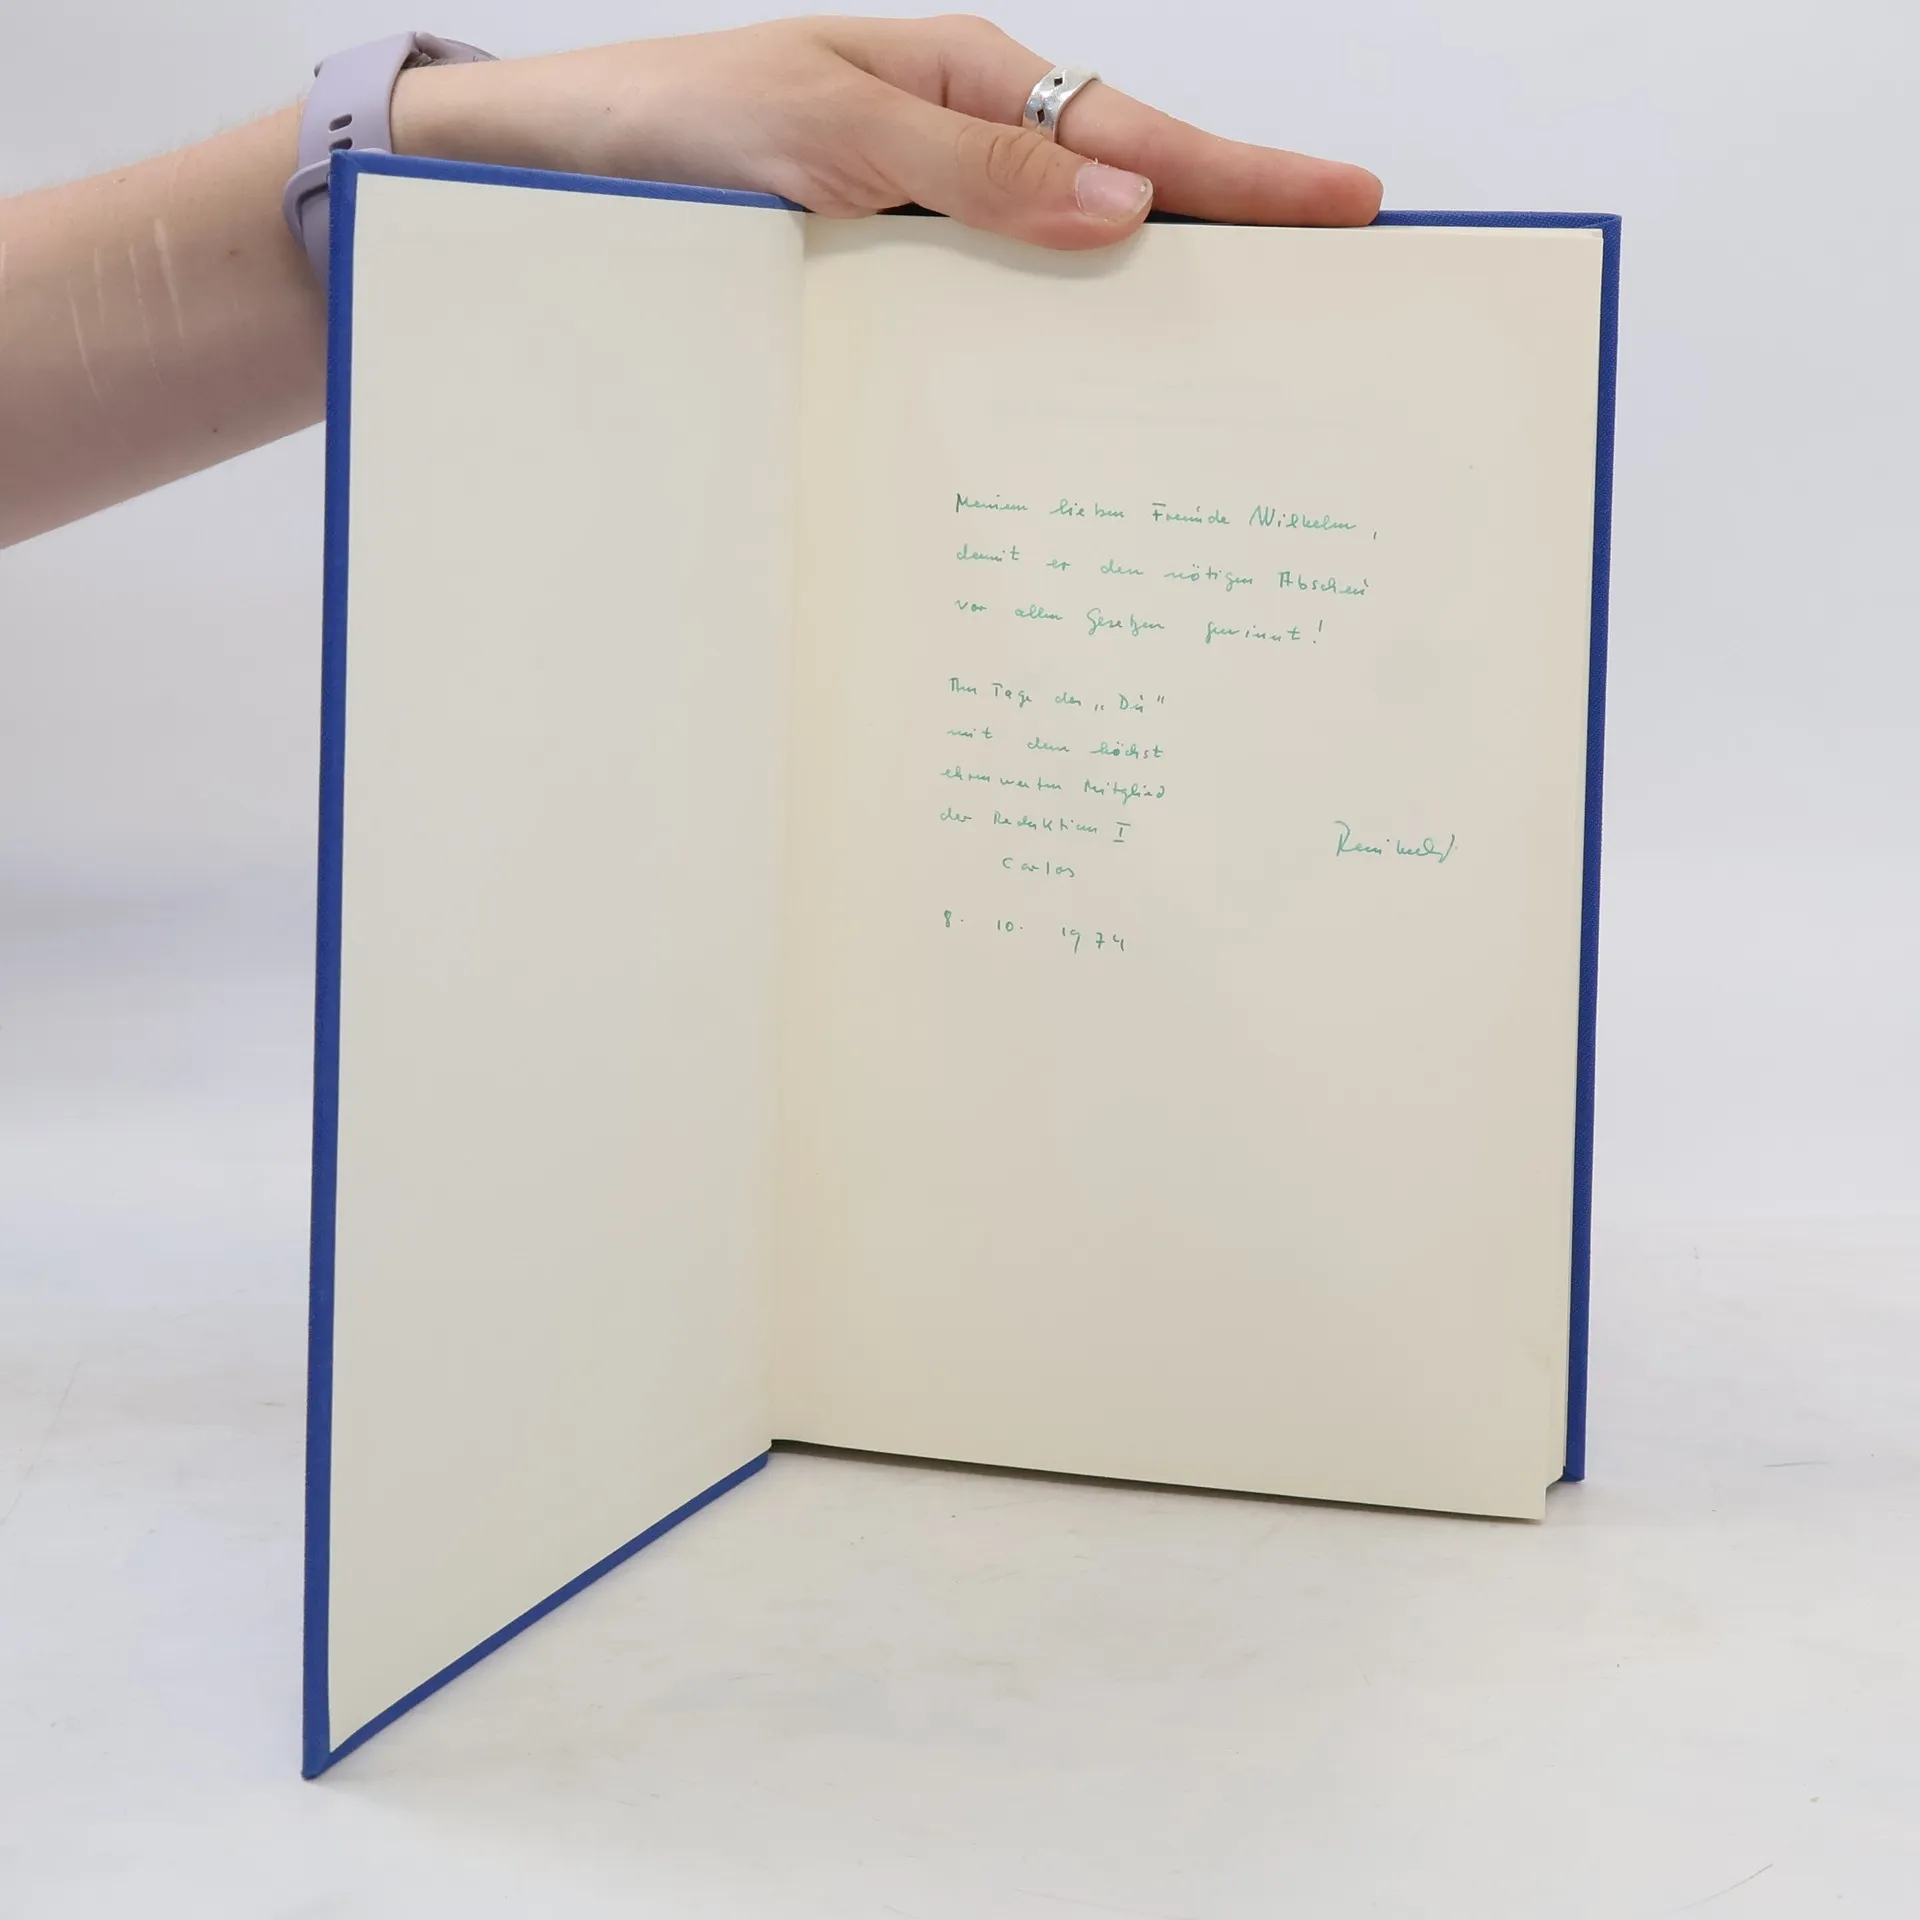 Meinem lieben Freunde Wilhelm,
damit er den nötigen Abscheu
vor allen Gesetzen gewinnt!
Am Tage des „Du"
mit dem höchst
ehrenwerten Mitglied
der Redaktion I
Carlos
8. 10. 1974